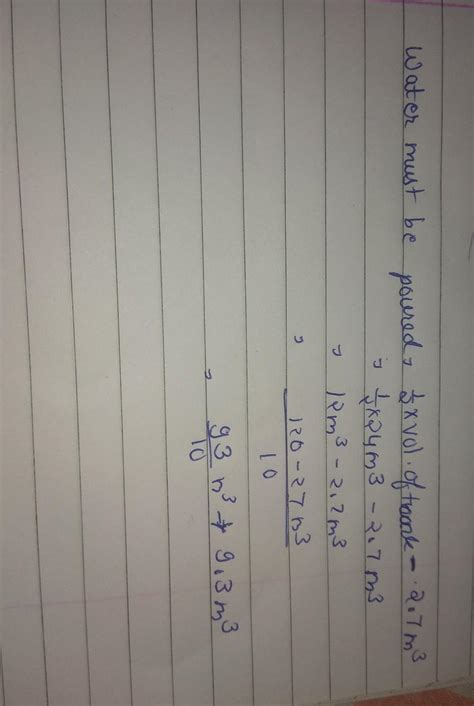 Water must be poured = 1/2 × vol. of tank - 2.7 m³
= 1/2 × 24 m³ - 2.7 m³
= 12 m³ - 2.7 m³
= 120 - 27 m³ / 10
= 93/10 m³ → 9.3 m³